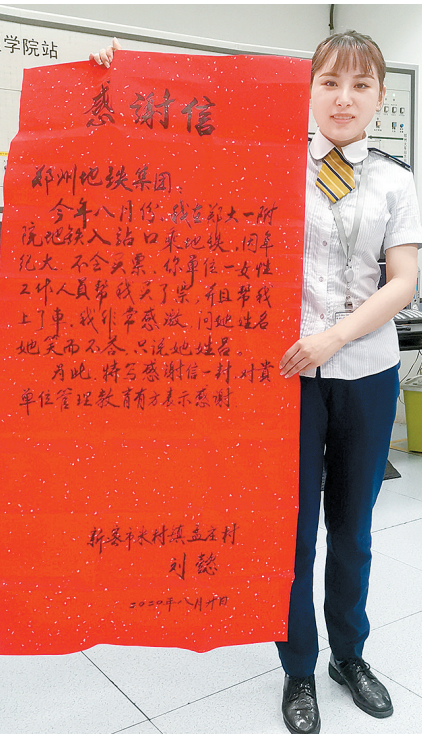 学院站
感谢信
郑州地铁集团:
今年八月份,我在郑大一附
院地铁入站口乘地铁,因年
纪大,不会买票,你单位一女性
工作人员帮我买了票,并且帮我
上了车,我非常感激,问她姓名
她笑而不答,只说她姓吕。
为此,特写感谢信一封,对贵
单位管理教育有方表示感谢
新密市米村镇孟庄村
刘懿
2020年八月廿日